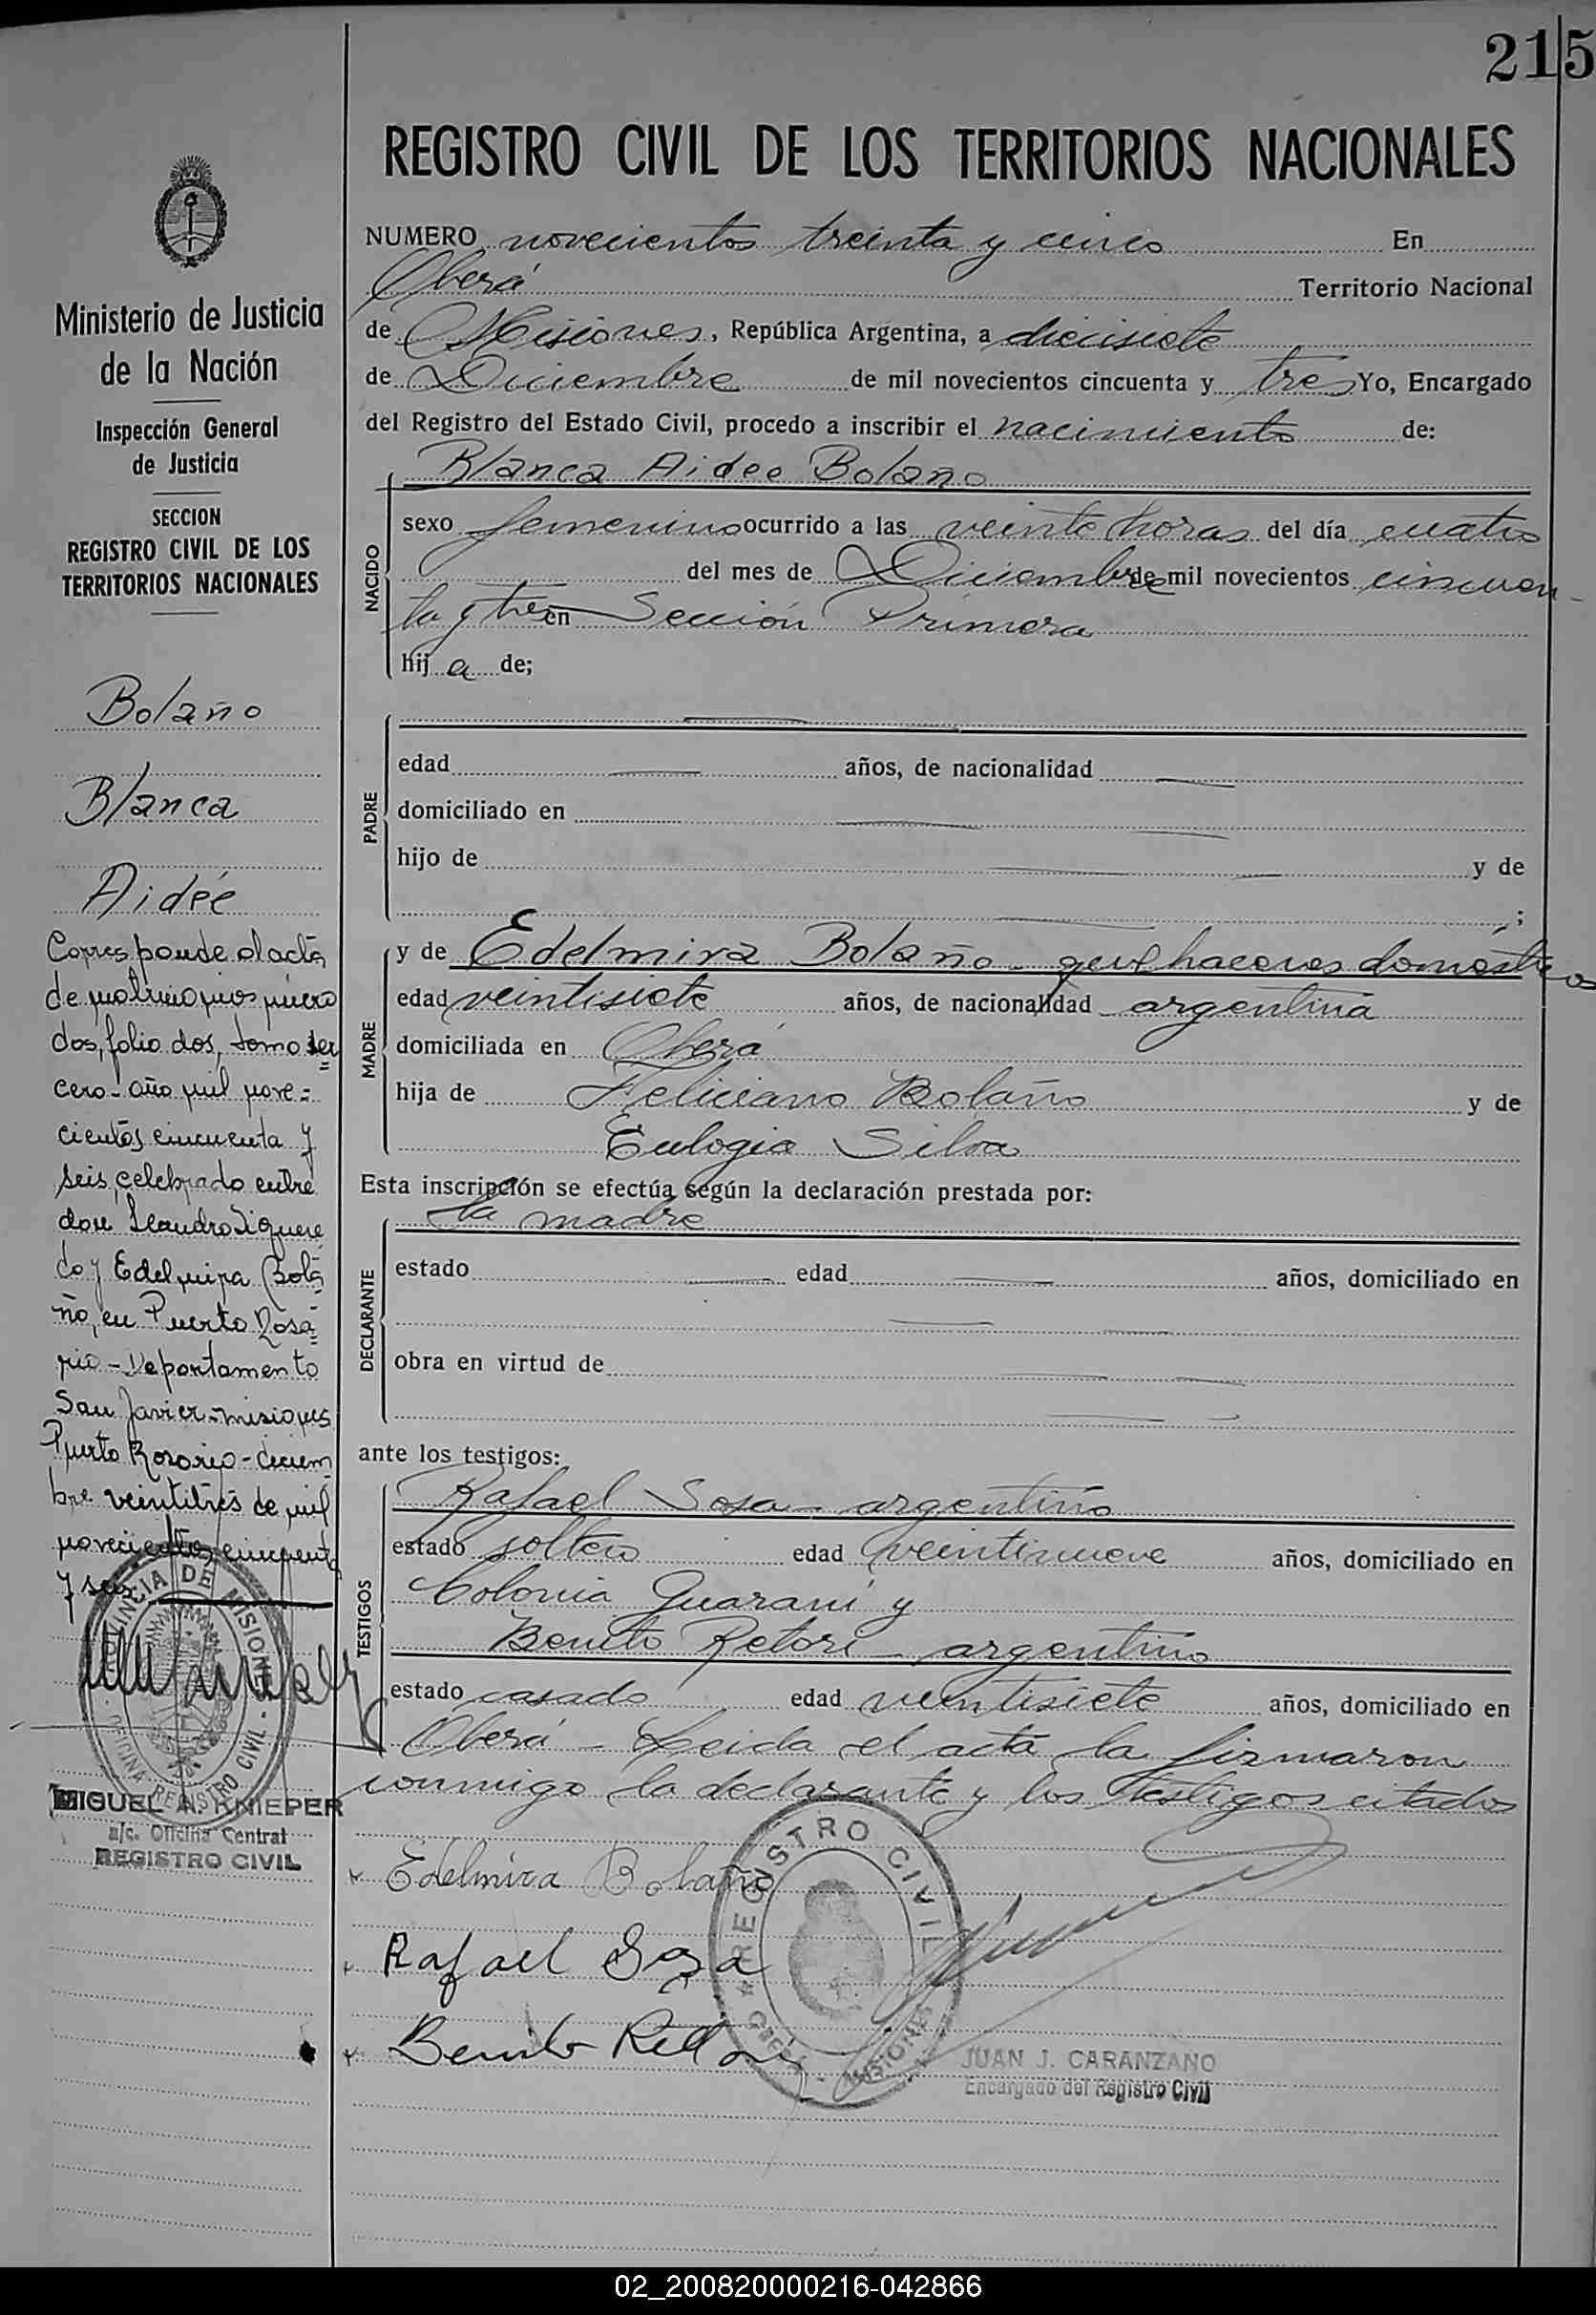 215
REGISTRO CIVIL DE LOS TERRITORIOS NACIONALES
Ministerio de Justicia
de la Nación
Inspección General
de Justicia
SECCION
REGISTRO CIVIL DE LOS
TERRITORIOS NACIONALES
Bolaño
Blanca
Aidée
Corresponde al acta
de matrimonios número
dos, folio dos, tomo ter
cero - año mil nove=
cientos cincuenta y
seis, celebrado entre
don Leandro Figuere
do y Edelmira Bola
ño, en Puerto Rosa=
rio - Departamento
San Javier - misiones
Puerto Rosario - diciem
bre veintitrés de mil
novecientos cincuenta
y seis
PROVINCIA DE MISIONES
OFICINA REGISTRO CIVIL
MIGUEL A. KNIEPER
a/c. Oficina Central
REGISTRO CIVIL
NUMERO novecientos treinta y cinco En
Oberá Territorio Nacional
de Misiones, República Argentina, a diecisiete
de Diciembre de mil novecientos cincuenta y tres Yo, Encargado
del Registro del Estado Civil, procedo a inscribir el nacimiento de:
Blanca Aidee Bolaño
NACIDO
sexo femenino ocurrido a las veinte horas del día cuatro
del mes de Diciembre de mil novecientos cincuen-
ta y tres en Sección Primera
hij a de;
PADRE
edad años, de nacionalidad
domiciliado en
hijo de y de
;
MADRE
y de Edelmira Bolaño - quehaceres domésticos
edad veintisiete años, de nacionalidad argentina
domiciliada en Oberá
hija de Feliciano Bolaño y de
Eulogia Silva
Esta inscripción se efectúa según la declaración prestada por:
la madre
DECLARANTE
estado edad años, domiciliado en
obra en virtud de
ante los testigos:
TESTIGOS
Rafael Sosa - argentino
estado soltero edad veintinueve años, domiciliado en
Colonia Guaraní y
Benito Retori - argentino
estado casado edad veintisiete años, domiciliado en
Oberá - Leida el acta la firmaron
conmigo la declarante y los testigos citados
Edelmira Bolaño
Rafael Sosa
Benito
REGISTRO CIVIL
OBERA - MISIONES
JUAN J. CARANZANO
Encargado del Registro Civil
02_200820000216-042866